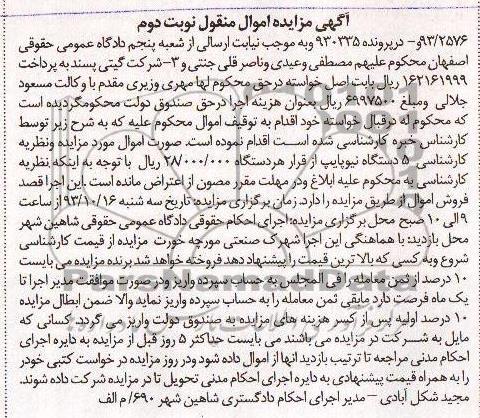 آگهی مزایده اموال منقول نوبت دوم
۹۳/۲۵۷۶و- درپرونده ۹۳۰۳۳۵ وبه موجب نیابت ارسالی از شعبه پنجم دادگاه عمومی حقوقی
اصفهان محکوم علیهم مصطفی وعیدی وناصر قلی جنتی و ۳- شرکت گیتی پسند به پرداخت
۱۶۲۱۶۱۹۹۹ ریال بابت اصل خواسته درحق محکوم لها مهری وزیری مقدم با وکالت مسعود
جلالی ومبلغ ۶۹۹۷۵۰۰ ریال بعنوان هزینه اجرا درحق صندوق دولت محکومگردیده است
که محکوم له درقبال خواسته خود اقدام به توقیف اموال محکوم علیه که به شرح زیر توسط
کارشناس خبره کارشناسی شده است اقدام نموده است. صورت اموال مورد مزایده ونظریه
کارشناسی ۵ دستگاه نیوپایپ از قرار هردستگاه ۲۸/۰۰۰/۰۰۰ ریال با توجه به اینکه نظریه
کارشناسی به محکوم علیه ابلاغ ودر مهلت مقرر مصون از اعتراض مانده است .این اجرا قصد
فروش اموال از طریق مزایده را دارد. زمان برگزاری مزایده: تاریخ سه شنبه ۹۳/۱۰/۱۶ از ساعت
۹ الی ۱۰ صبح محل برگزاری مزایده:اجرای احکام حقوقی دادگاه عمومی حقوقی شاهین شهر
محل بازدید: با هماهنگی این اجرا شهرک صنعتی مورچه خورت مزایده از قیمت کارشناسی
شروع وبه کسی که بالا ترین قیمت را پیشنهاد دهد فروخته خواهد شد برنده مزایده می بایست
۱۰ درصد از ثمن معامله را فی المجلس به حساب سپرده واریز ودرصورت موافقت مدیر اجرا تا
یک ماه فرصت دارد مابقی ثمن معامله را به حساب سپرده واریز نماید والا ضمن ابطال مزایده
۱۰ درصد اولیه پس از کسر هزینه های مزایده به صندوق دولت واریز می گردد. کسانی که
مایل به شرکت در مزایده می باشند می بایست حداکثر ۵ روز قبل از مزایده به دایره اجرای
احکام مدنی مراجعه تا ترتیب بازدید انها از اموال داده شود ودر روز مزایده در خواست کتبی خودر
را به همراه قیمت پیشنهادی به دایره اجرای احکام مدنی تحویل تا در مزایده شرکت داده شوند.
مجید شکل آبادی – مدیر اجرای احکام دادگستری شاهین شهر ۶۹۰/ م الف